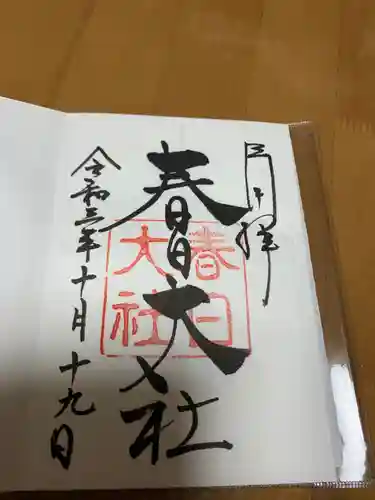 月日拝
春日大社
春日
大社
令和三年十月十九日